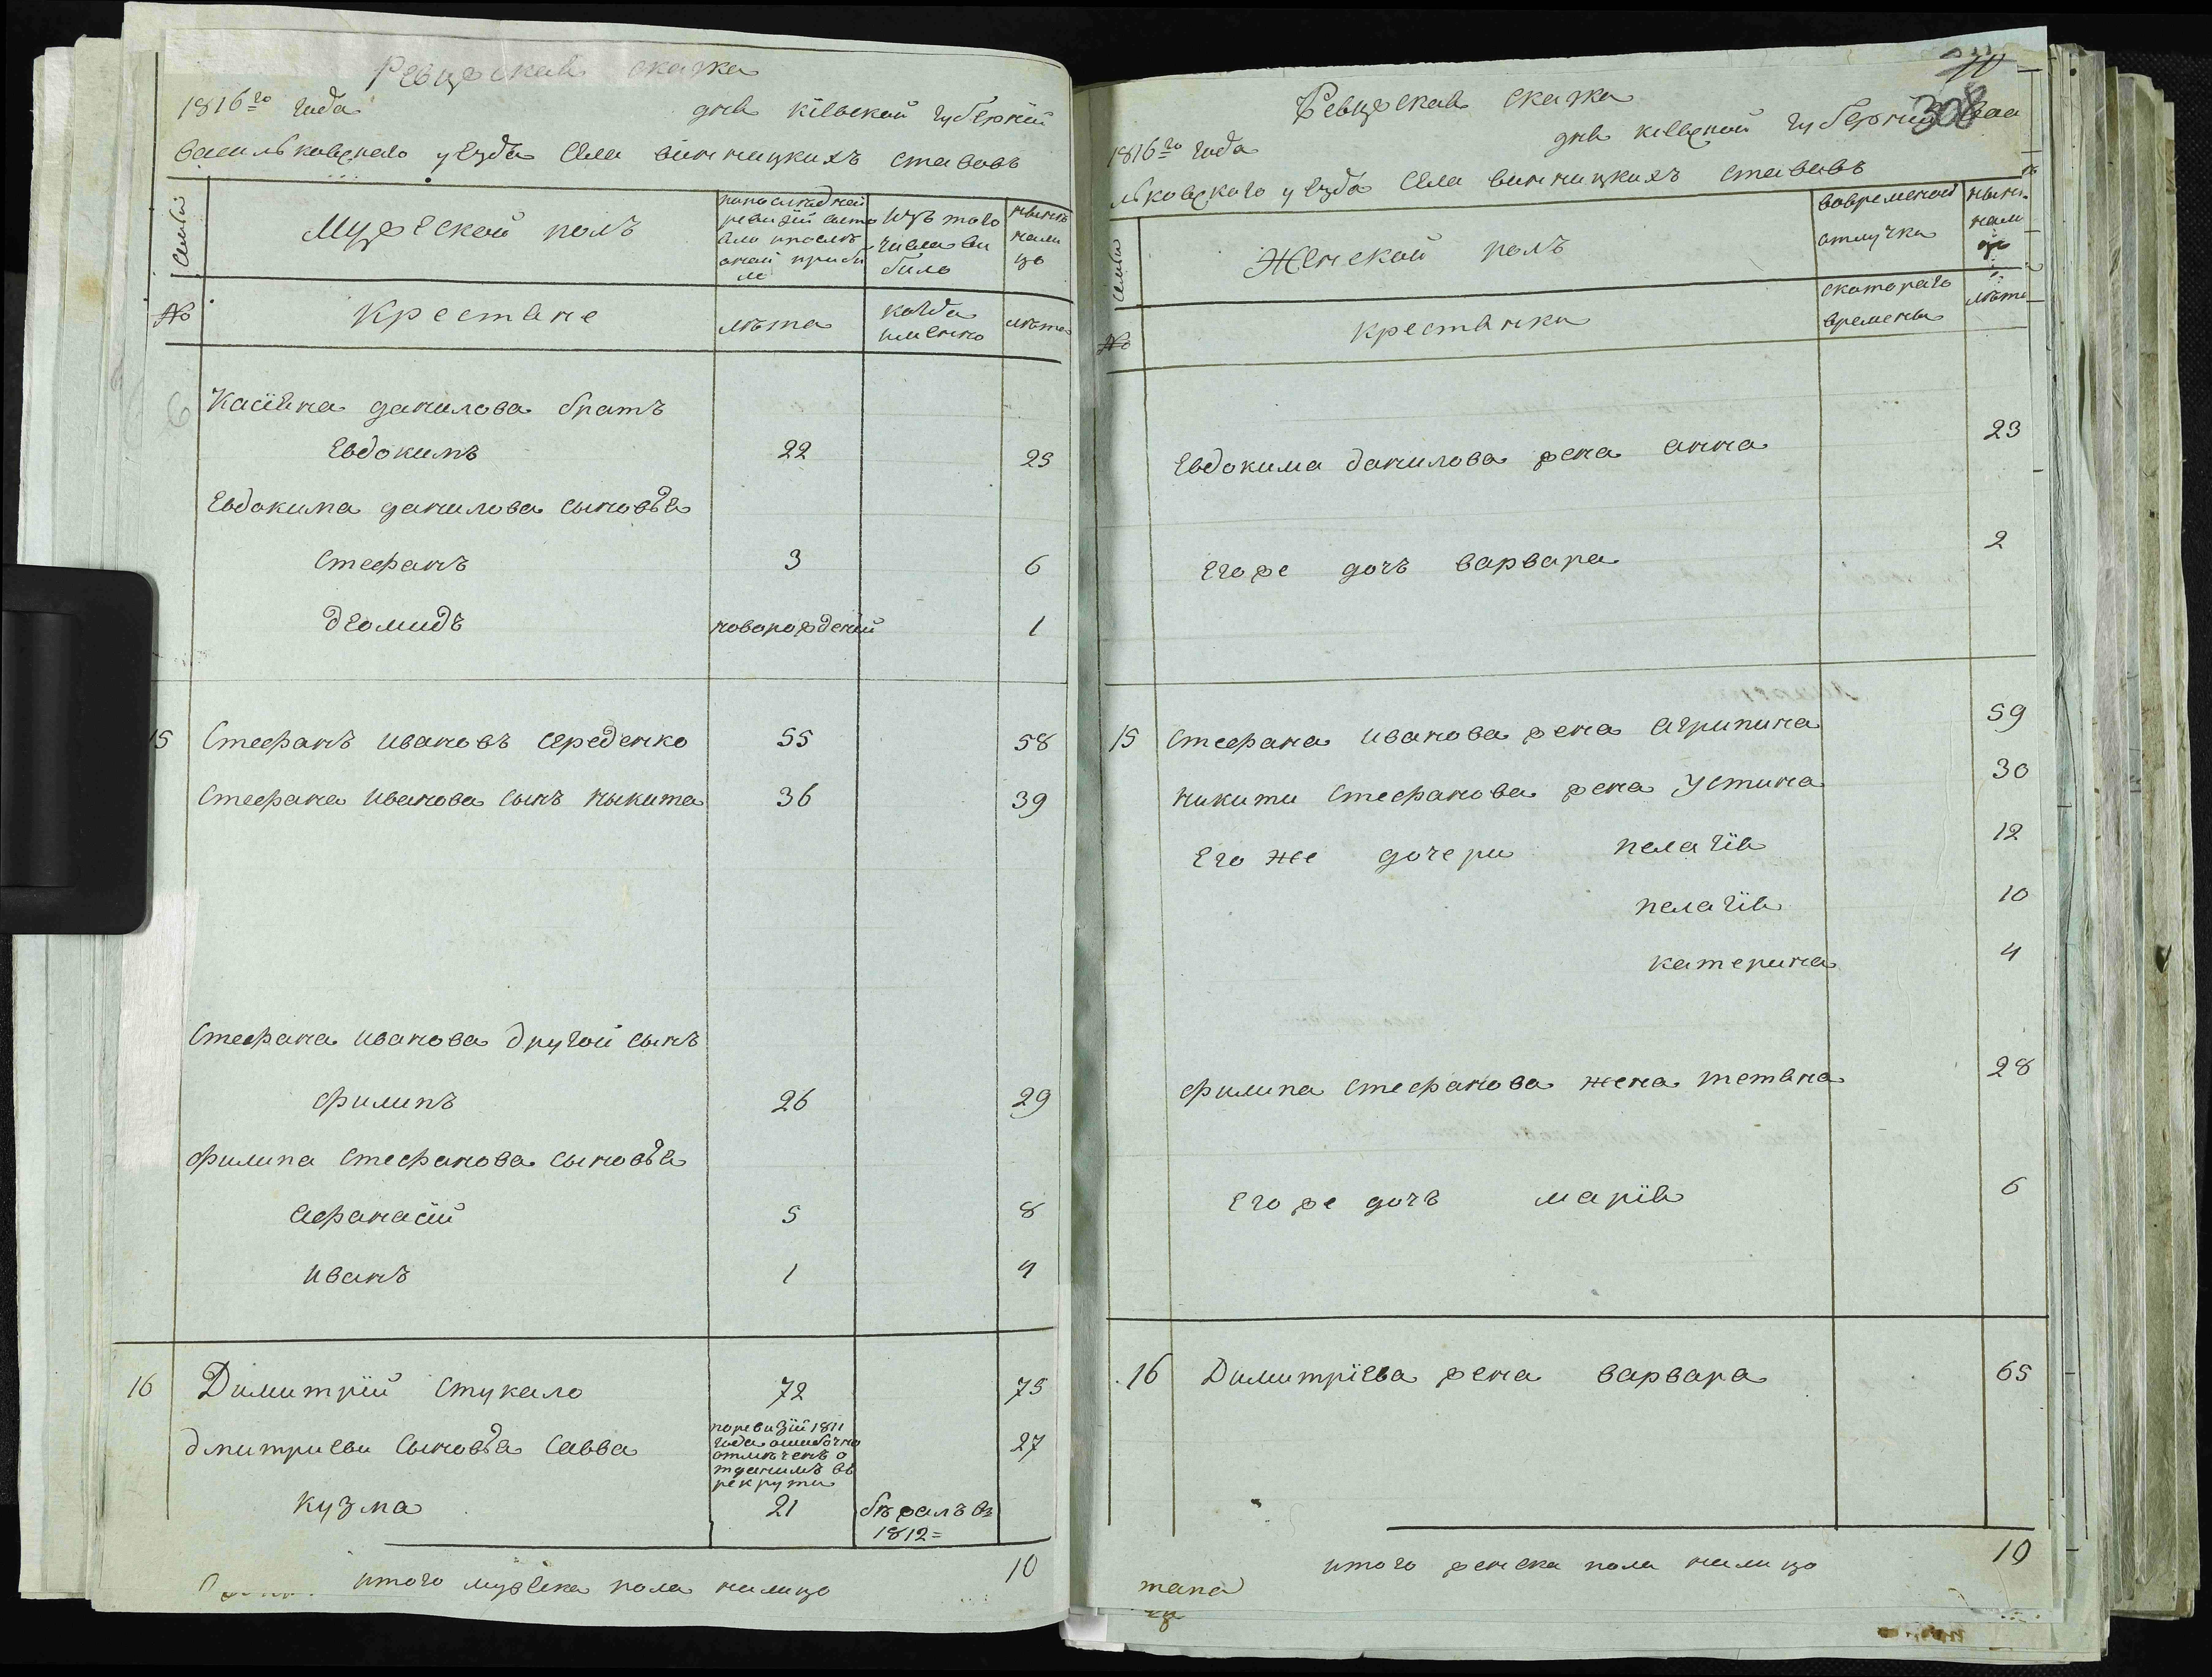 Ревизская сказка
1816го года дня кіевской губерніи
васильковскаго уезда села винницкихъ ставовъ
Семьи
Мужеской полъ
попоследней ревизіи состояло ипосле оной прибыло
изъ того числа выбило
ныне налицо
№
Крестяне
лета
когда именно
лета
Касіяна данилова братъ
Евдокимъ 22 25
Евдокима данилова сыновья
Стефанъ 3 6
діомидъ новорожденій 1
15 Стефанъ ивановъ середенко 55 58
Стефана иванова сынъ никита 36 39
Стефана иванова другой сынъ
филипъ 26 29
филипа стефанова сыновья
Афанасій 5 8
иванъ 1 4
16 Димитрій стукало 72 75
дмитриеви сыновья савва поревизіи 1811 года ошибочно отмеченъ отданимъ въ рекрути 27
кузма 21 бежалъ въ 1812=
итого мужеска пола налицо 10
308
Ревизская сказка
1816го года дня кіевской губерніи васи
льковского уезда села винницкихъ ставовъ
Семьи
Женской полъ
вовременой отлучки
ныне налицо
№
крестянки
скотораго времены
лета
Евдокима данилова жена анна 23
Егоже дочь варвара 2
15 Стефана иванова жена агрипина 59
никити стефанова жена устина 30
Его же дочери пелагія 12
пелагія 10
катерина 4
филипа стефанова жена тетяна 28
Егоже дочь марія 6
16 Димитріева жена варвара 65
итого женска пола налицо 10